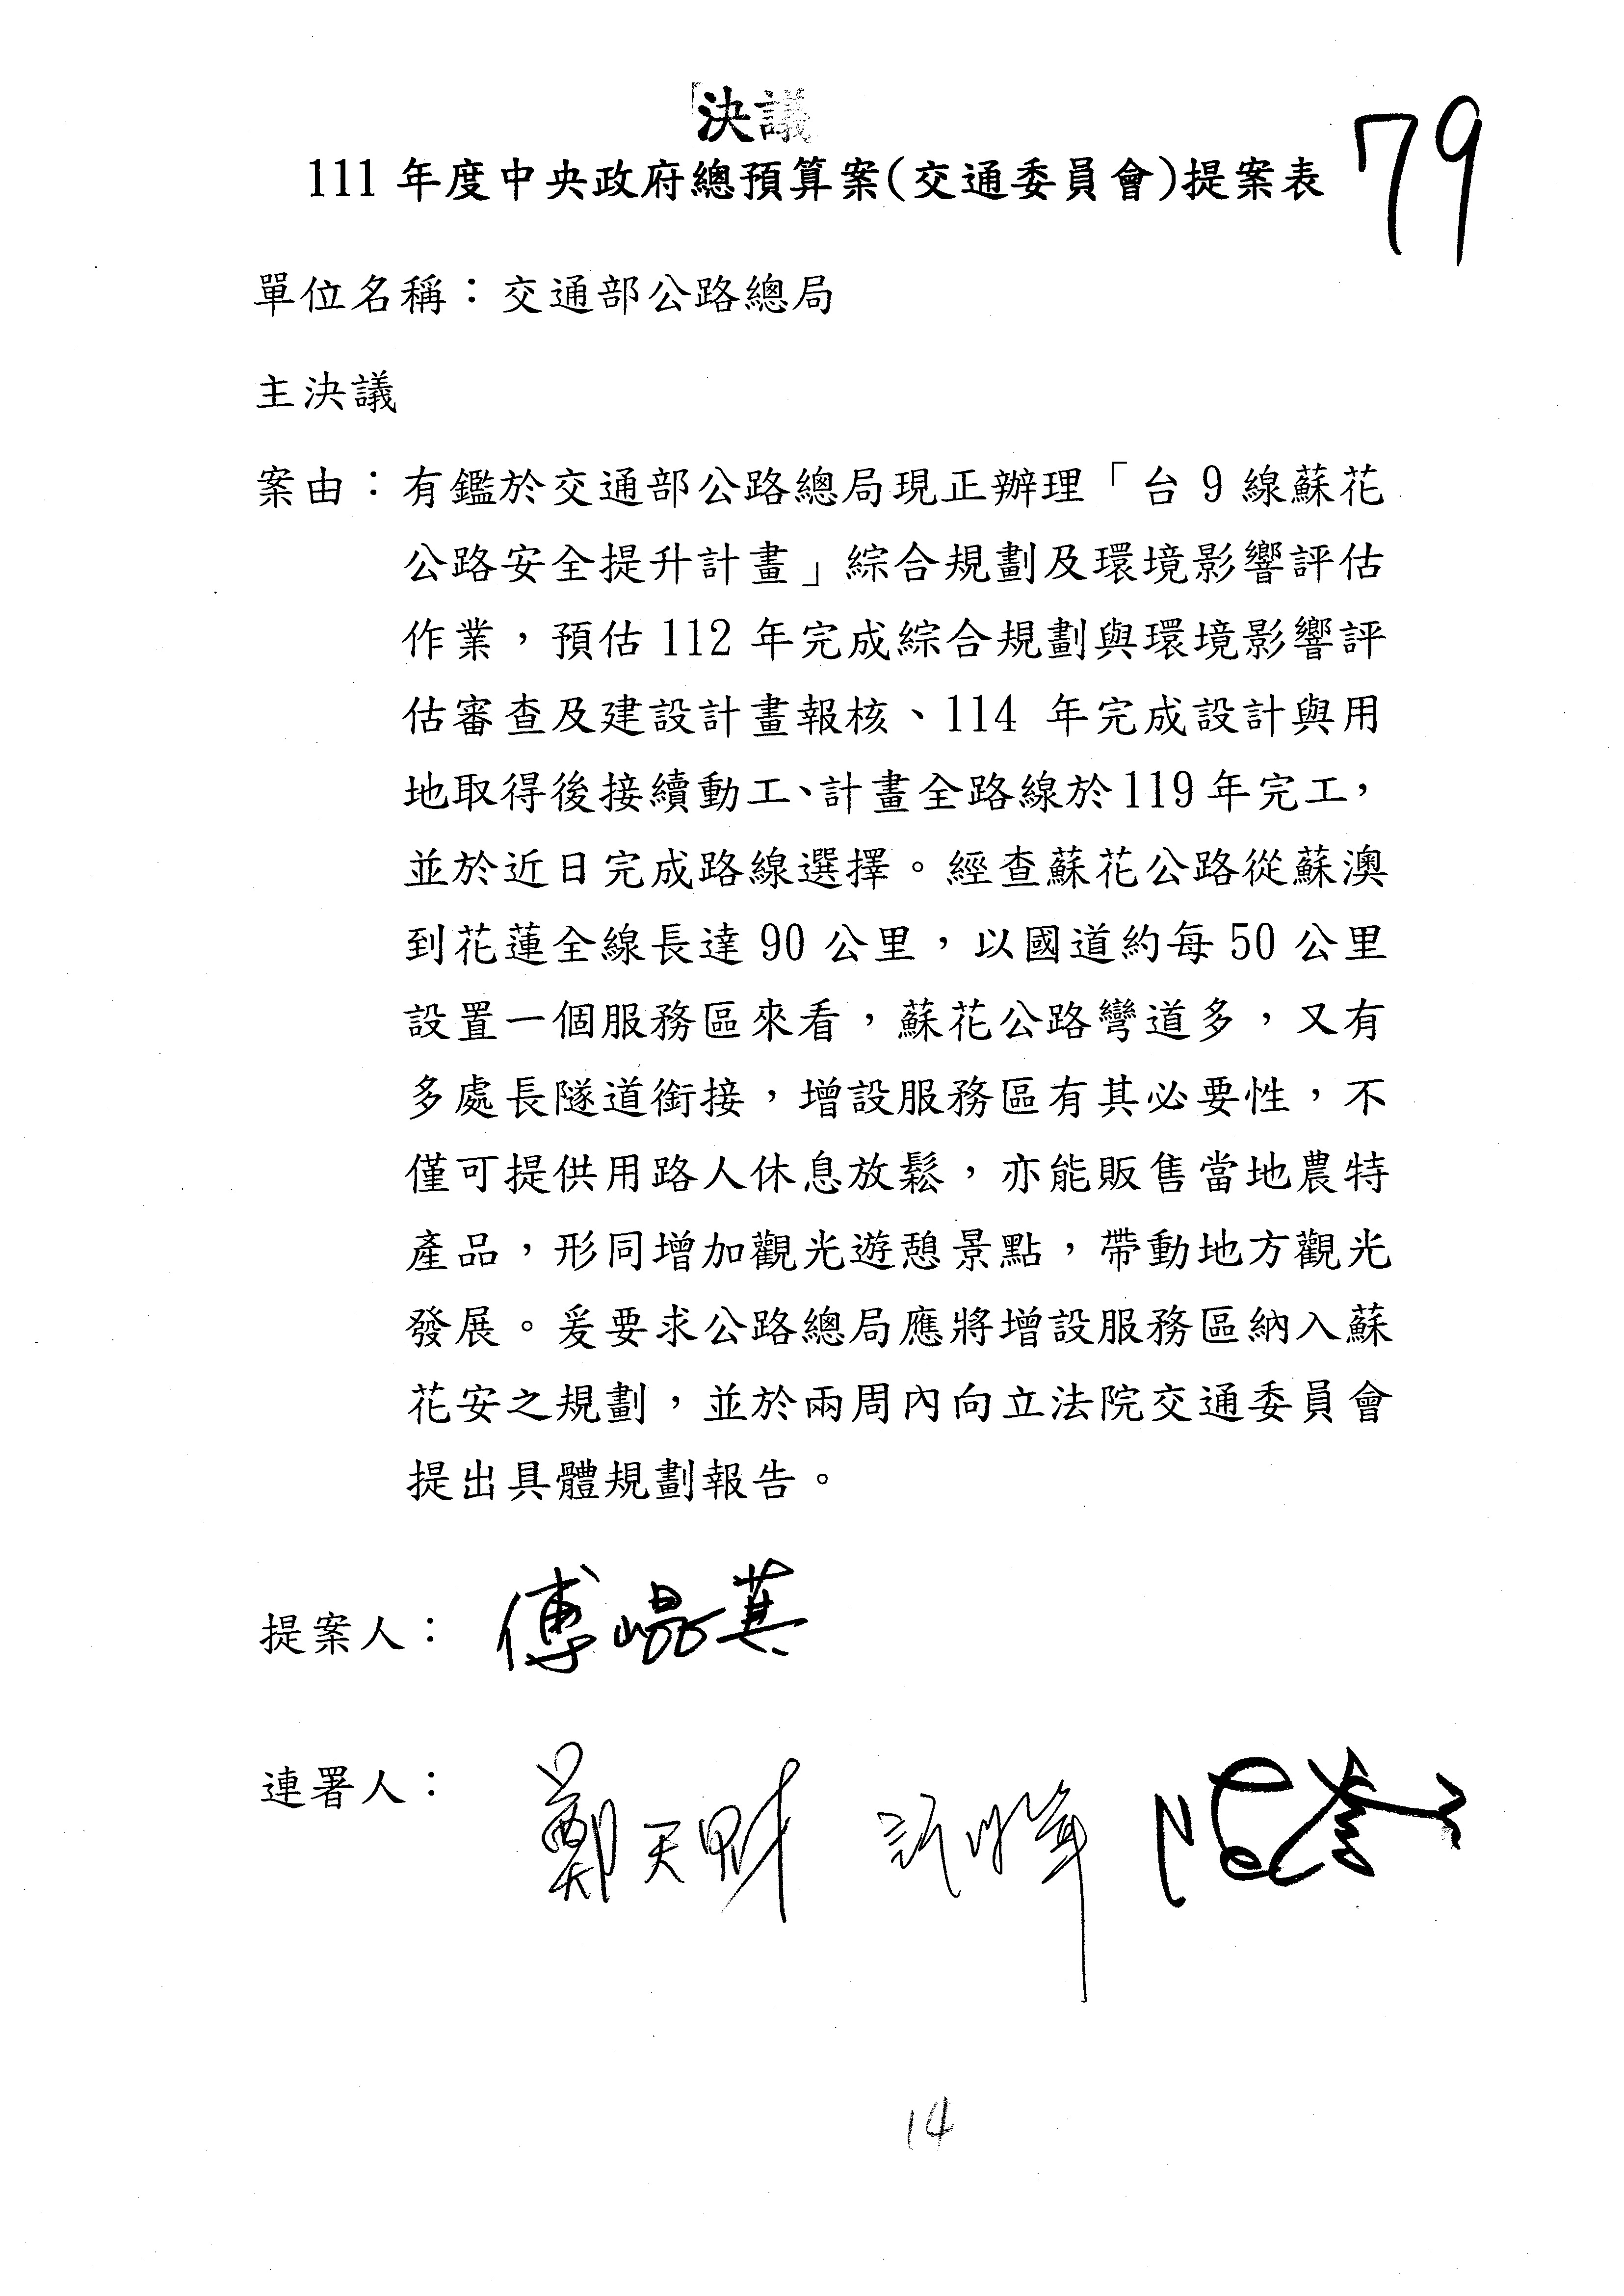 決議
79
111 年度中央政府總預算案(交通委員會)提案表
單位名稱：交通部公路總局
主決議
案由：有鑑於交通部公路總局現正辦理「台 9 線蘇花
公路安全提升計畫」綜合規劃及環境影響評估
作業，預估 112 年完成綜合規劃與環境影響評
估審查及建設計畫報核、114 年完成設計與用
地取得後接續動工、計畫全路線於 119 年完工，
並於近日完成路線選擇。經查蘇花公路從蘇澳
到花蓮全線長達 90 公里，以國道約每 50 公里
設置一個服務區來看，蘇花公路彎道多，又有
多處長隧道銜接，增設服務區有其必要性，不
僅可提供用路人休息放鬆，亦能販售當地農特
產品，形同增加觀光遊憩景點，帶動地方觀光
發展。爰要求公路總局應將增設服務區納入蘇
花安之規劃，並於兩周內向立法院交通委員會
提出具體規劃報告。
提案人：傅崐萁
連署人：鄭天財
14